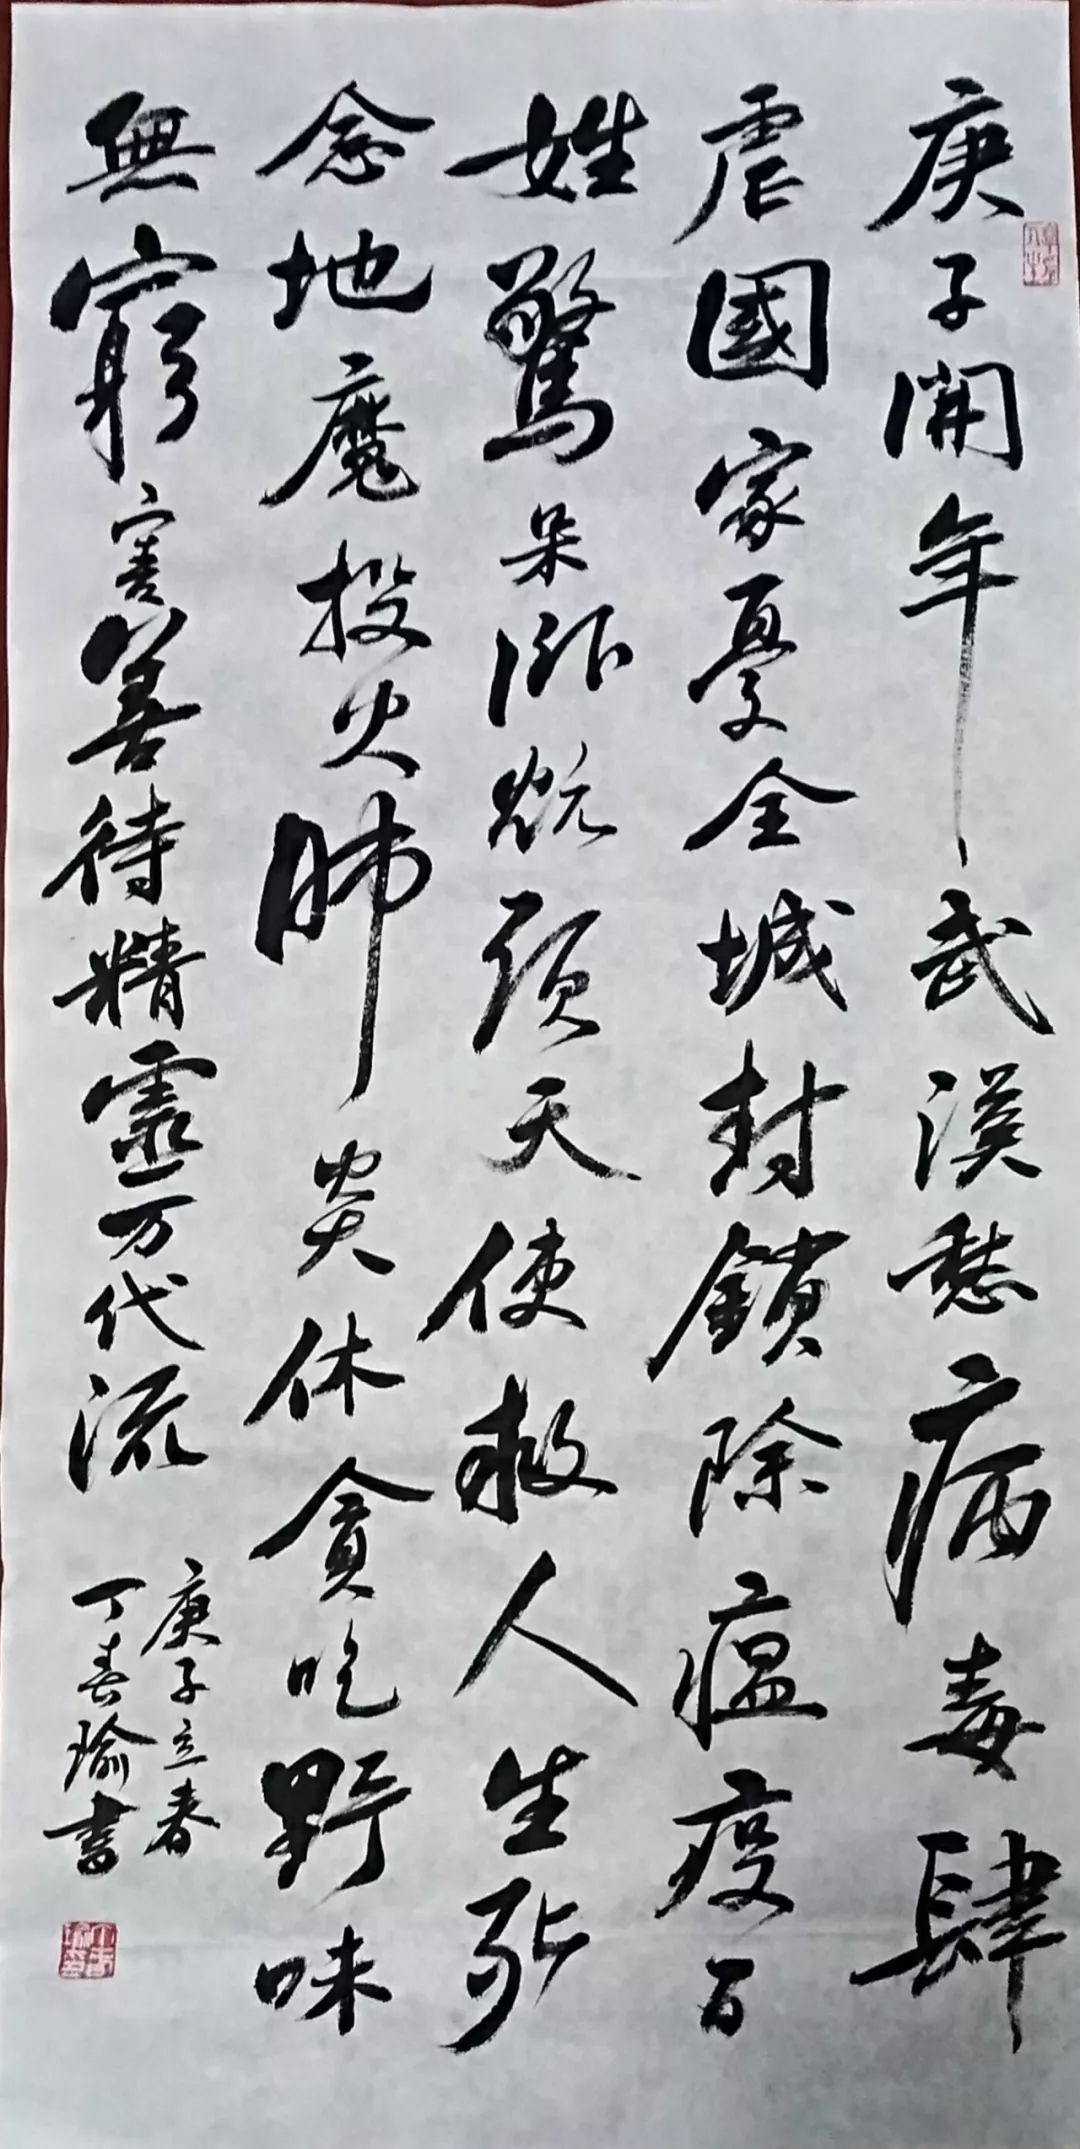 庚子開年武漢愁病毒肆
虐國家憂全城封鎖除瘟疫百
姓驚呆臥炕頭天使救人生死
念地魔投火肺炎休貪吃野味
無窮害善待精靈萬代流
庚子立春
丁春瑜書